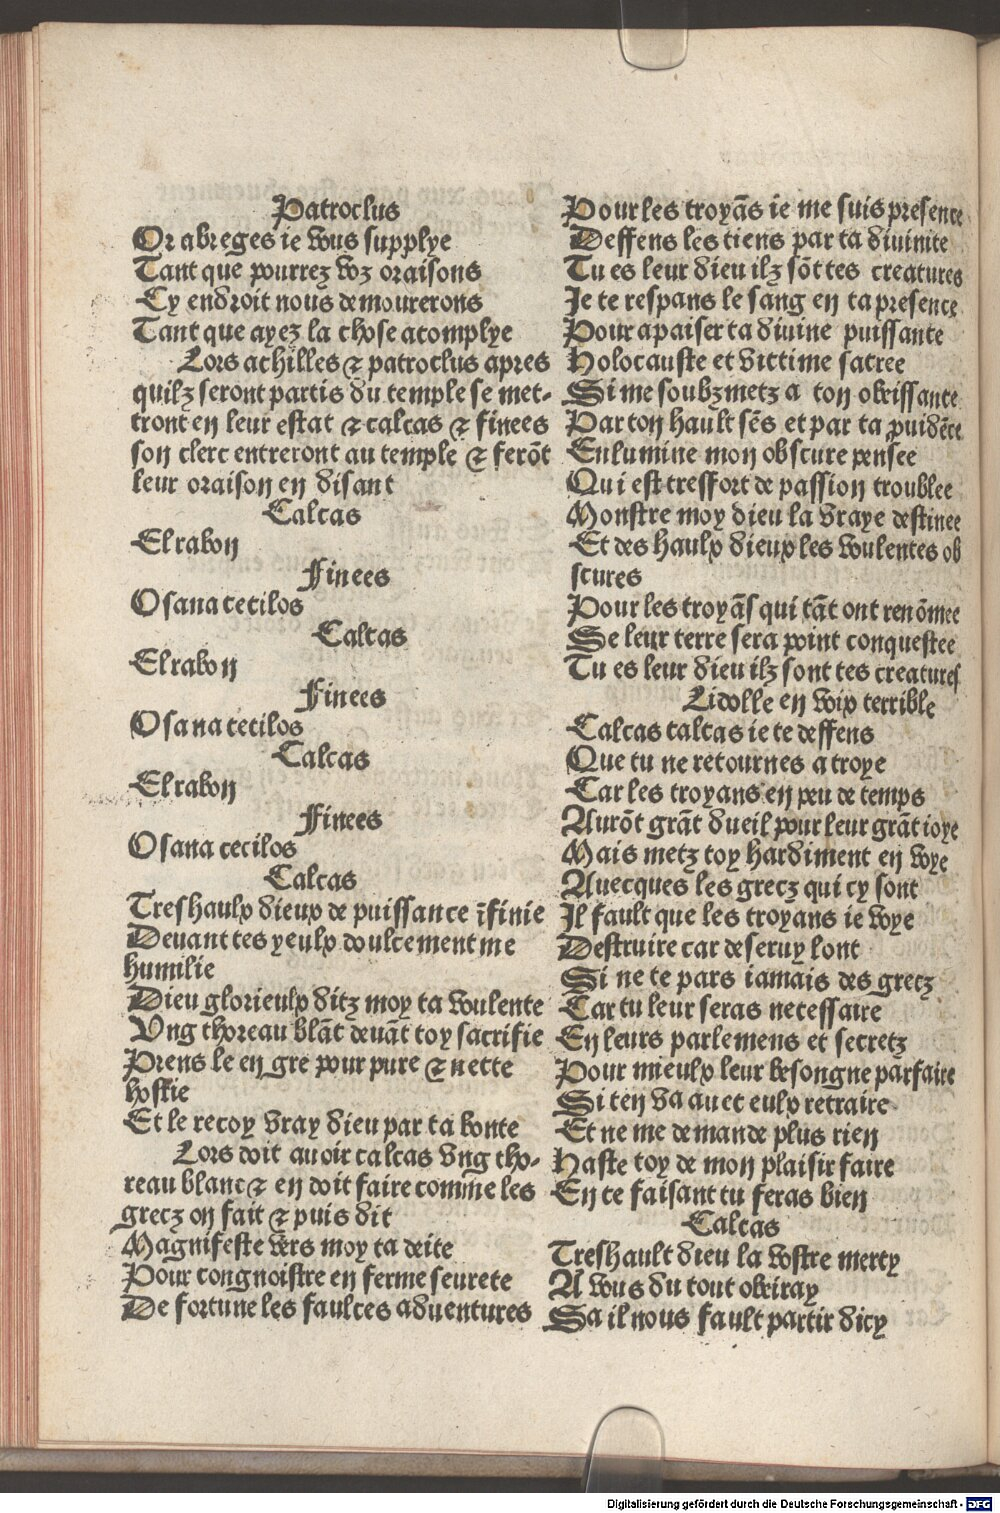 Patroclus
Or abreges ie vous supplye
Tant que pourrez voz oraisons
Cy endroit nous demourerons
Tant que ayez la chose acomplye
Lors achilles ⁊ patroclus apres
quilz seront partis du temple se met-
tront en leur estat ⁊ calcas ⁊ finees
son clerc entreront au temple ⁊ ferõt
leur oraison en disant
Calcas
El rabon
Finees
Osana cecilos
Calcas
El rabon
Finees
Osana cecilos
Calcas
El rabon
Finees
Osana cecilos
Calcas
Treshaulx dieux de puissance ĩfinie
Deuant tes yeulx doulcement me
humilie
Dieu glorieulx ditz moy ta voulente
Ung thoreau blãc deuãt toy sacrifie
Prens le en gre pour pure ⁊ nette
hostie
Et le recoy vray dieu par ta bonte
Lors doit auoir calcas vng tho-
reau blanc ⁊ en doit faire comme les
grecz on fait ⁊ puis dit
Magnifeste vers moy ta deite
Pour congnoistre en ferme seurete
De fortune les faulces aduentures
Pour les troyãs ie me suis presente
Deffens les tiens par ta diuinite
Tu es leur dieu ilz sõt tes creatures
Je te respans le sang en ta presence
Pour apaiser ta diuine puissance
Holocauste et victime sacree
Si me soubzmetz a ton obeissance
Par ton hault sẽs et par ta puidẽce
Enlumine mon obscure pensee
Qui est tresfort de passion troublee
Monstre moy dieu la vraye destinee
Et des haulx dieux les voulentes ob
scures
Pour les troyãs qui tãt ont renõmee
Se leur terre sera point conquestee
Tu es leur dieu ilz sont tes creatures
Lidolle en voix terrible
Calcas calcas ie te deffens
Que tu ne retournes a troye
Car les troyans en peu de temps
Aurõt grãt dueil pour leur grãt ioye
Mais metz toy hardiment en voye
Auecques les grecz qui cy sont
Il fault que les troyans ie voye
Destruire car deseruy lont
Si ne te pars iamais des grecz
Car tu leur seras necessaire
En leurs parlemens et secretz
Pour mieulx leur besongne parfaire
Si ten va auec eulx retraire
Et ne me demande plus rien
Haste toy de mon plaisir faire
En ce faisant tu feras bien
Calcas
Treshault dieu la vostre mercy
A vous du tout obeiray
Sa il nous fault partir dicy
Digitalisierung gefördert durch die Deutsche Forschungsgemeinschaft - DFG